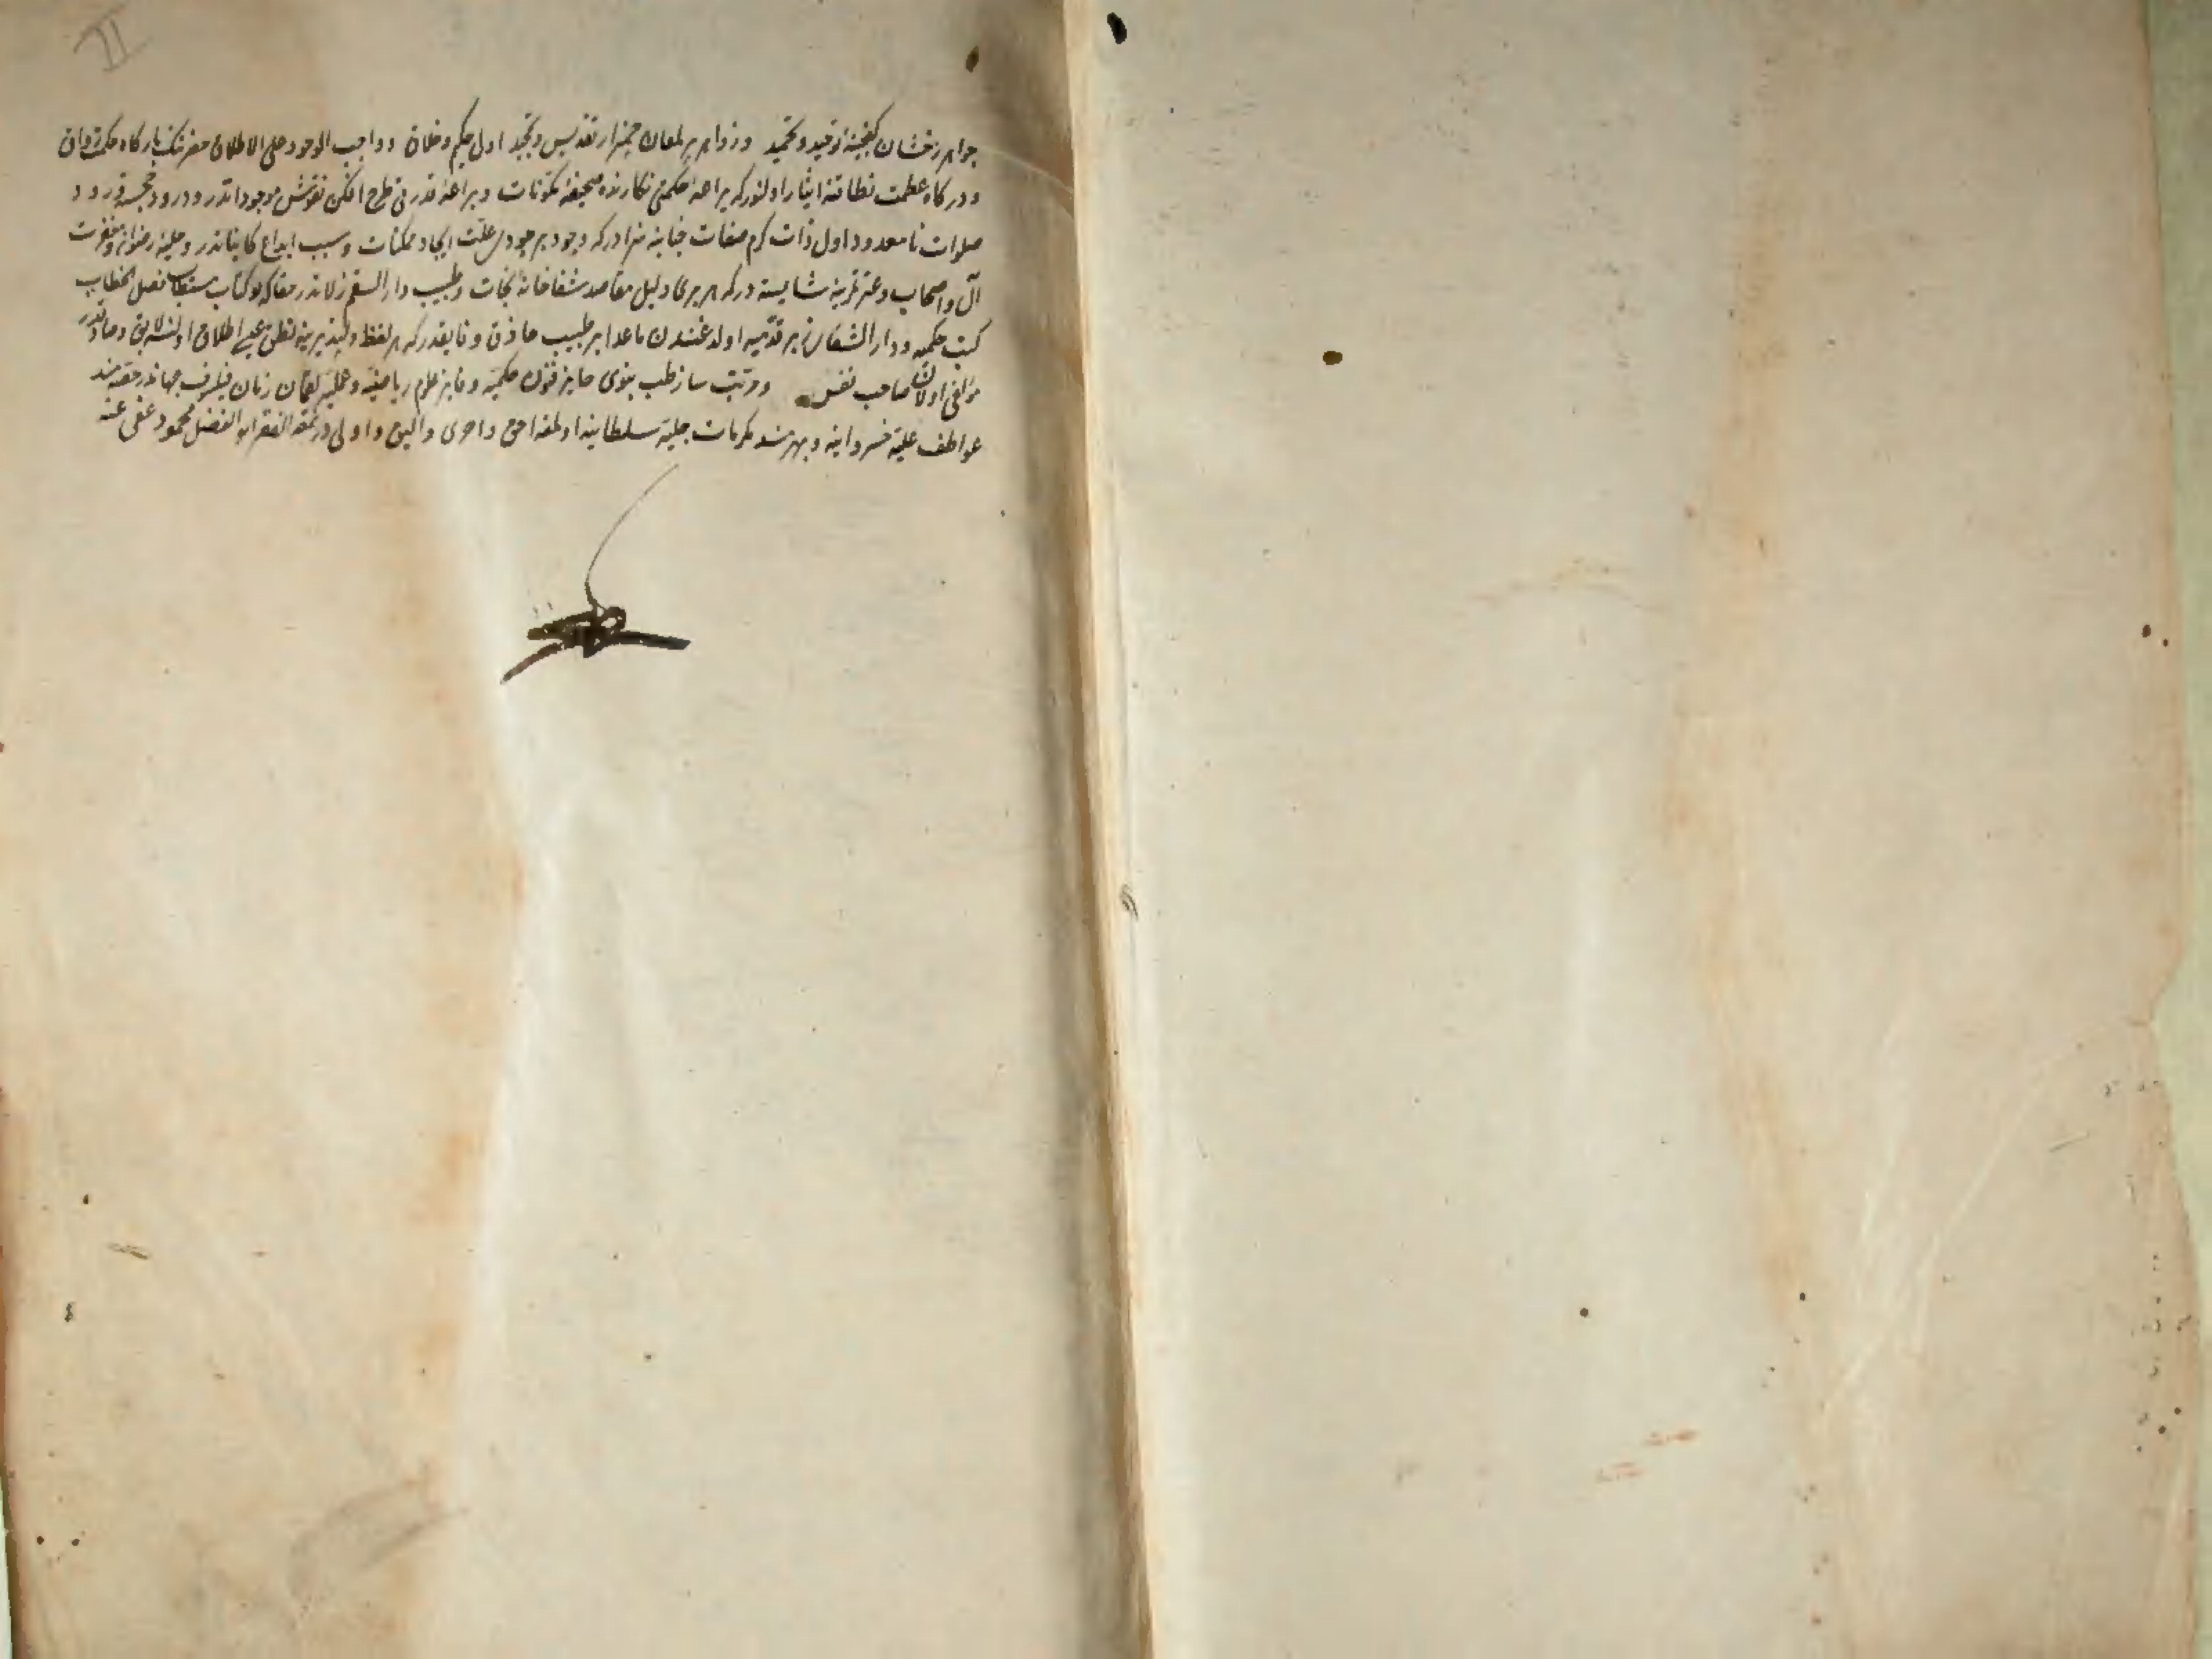 II
جواهر رخشان گنجینهٔ توحید و تحمید وزواهر پر لمعان چمنزار تقدیس وتمجید اول حکیم وخلاق و واجب الوجود علی الاطلاق حضرتنک بارکاه حکمت رواق
ودرکاه عظمت نطاقنه ایثار اولنورکه یراعهٔ حکمتی نکارندهٔ صحیفهٔ مکونات ویراعهٔ قدرتی طرح افکن نقوش موجوداتدر ودرود
صلوات نامعدود اول ذات کرم صفات جنابنه سزادرکه وجود پر جودی علت ایجاد ممکنات وسبب ابداع کایناتدر وحلیهٔ رضوان ومغفرت
آل واصحاب وعترتینه شایسته درکه هر بری دلیل مقاصد شفاخانهٔ نجات وطبیب دار السقم در حقا که بو کتاب مستطاب فصل الخطاب
کتب حکمیه ودار الشفا اولدغندن ماعدا بر طبیب حاذق وفایقدرکه هر لفظ دلپذیرینه اطلاق اولنسه لایق
مؤلفی اولان صاحب نفس ومرتب ساز طب نبوی حایز فنون حکمیه وفایز علوم ریاضیه وعملیه لقمان زمان فیلسوف جهاندر حصه مند
عواطف علیهٔ خسروانیه وبهره‌مند مکرمات جلیهٔ سلطانیه اولمغه احق واحری والیق واولی در نمقه الفقیر ابو الفضل محمود عفی عنه